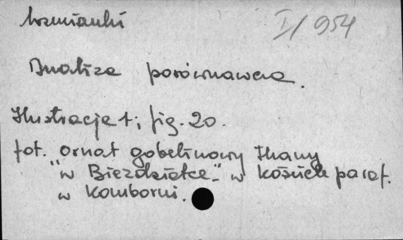 wzmianki
I/954
Analiza porównawcza.
Ilustracje 1; fig. 20.
fot. "ornat gobelinowy tkany
w Bieździatce" w kościele paraf.
w Komborni.